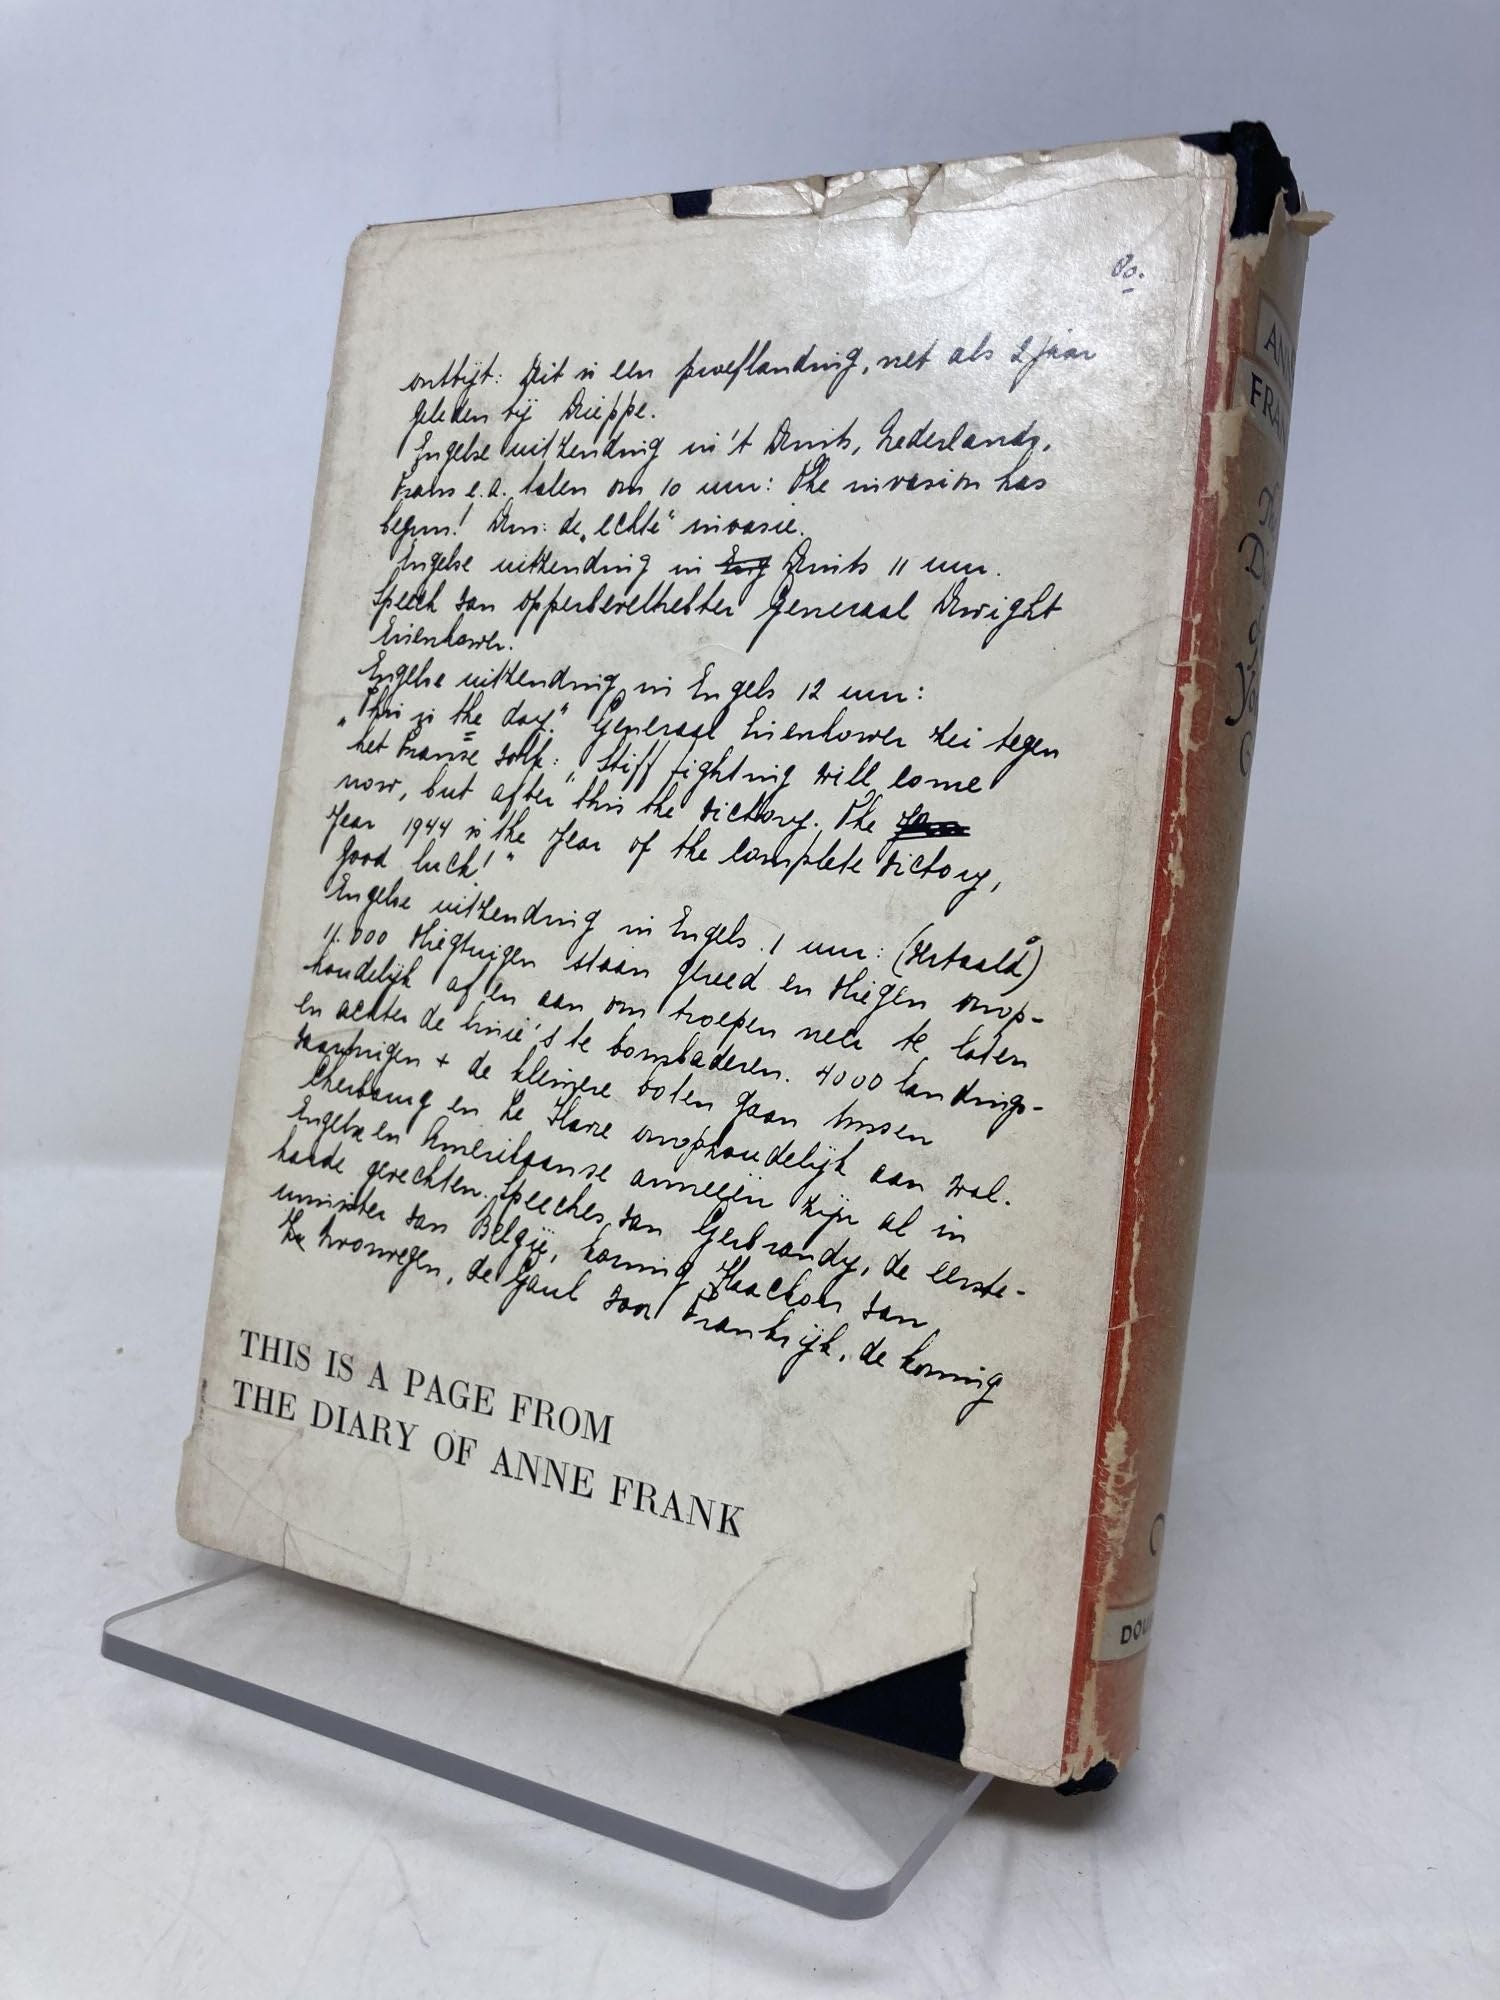 80.
ontbijt: Dit is een proeflanding, net als 2 jaar
geleden bij Dieppe.
Engelse uitzending in 't Duits, Nederlands,
Frans e.a. talen om 10 uur: The invasion has
begun! Dus: de „echte" invasie.
Engelse uitzending in Eng Duits 11 uur.
Speech van opperbevelhebber Generaal Dwight
Eisenhower.
Engelse uitzending in Engels 12 uur:
„This is the day." Generaal Eisenhower zei tegen
het Franse volk: „Stiff fighting will come
now, but after this the victory. The
Year 1944 is the Year of the complete victory,
good luck!"
Engelse uitzending in Engels. 1 uur: (Vertaald)
11.000 vliegtuigen staan gereed en vliegen onop-
houdelijk af en aan om troepen neer te laten
en achter de linie's te bombaderen. 4000 landings-
vaartuigen + de kleinere boten gaan tussen
Cherbourg en Le Havre onophoudelijk aan wal.
Engelse en Amerikaanse armeeën zijn al in
harde gevechten. Speeches van Gerbrandy, de eerste-
minister van België, koning Haackon van
Noorwegen, de Gaul voor Frankrijk, de koning
THIS IS A PAGE FROM
THE DIARY OF ANNE FRANK
ANN
FRAN
The
Di
of
Yo
G
DOU